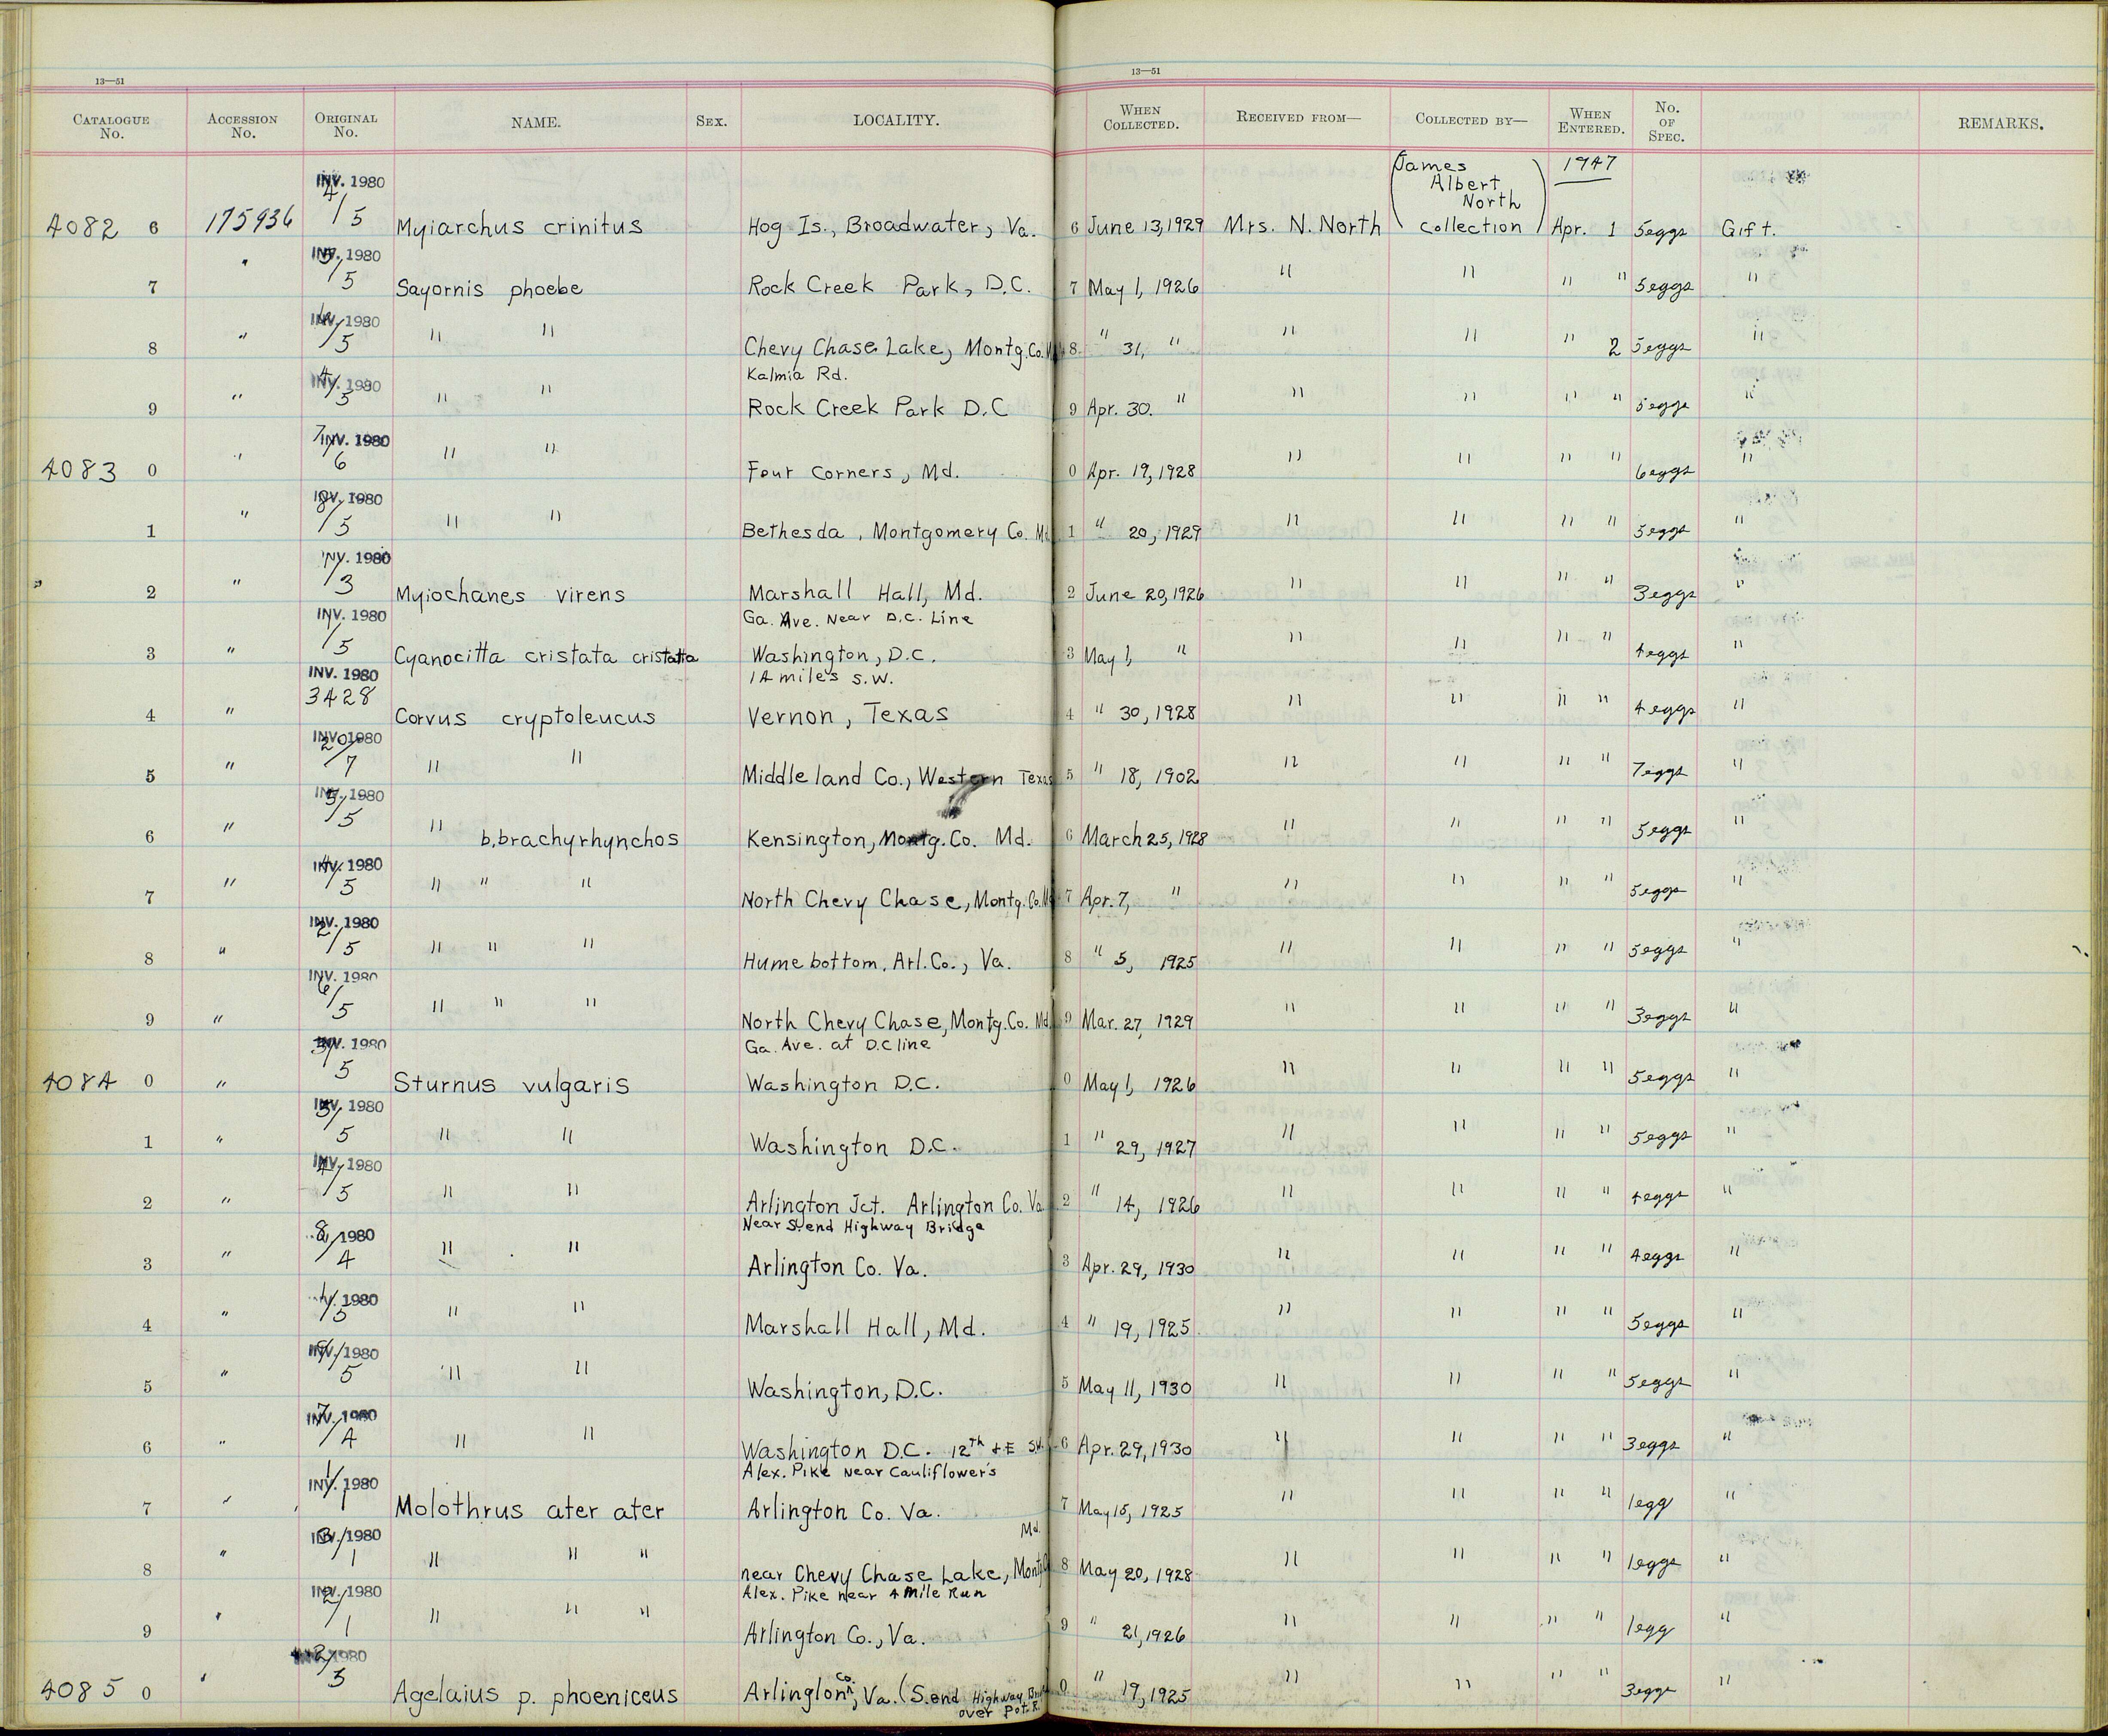 13—51
13—51
CATALOGUE No. ACCESSION No. ORIGINAL No. NAME. SEX. LOCALITY. WHEN COLLECTED. RECEIVED FROM— COLLECTED BY— WHEN ENTERED. No. OF SPEC. REMARKS.
(James Albert North collection) 1947
INV. 1980
4082 6 175936 4/5 Myiarchus crinitus Hog Is., Broadwater, Va. 6 June 13, 1929 Mrs. N. North Apr. 1 5eggs Gift.
INV. 1980
7 " /5 Sayornis phoebe Rock Creek Park, D.C. 7 May 1, 1926 " " " " 5eggs "
INV. 1980
8 " /5 " " Chevy Chase Lake, Montg. Co. 8 " 31, " " " " 2 5eggs "
Kalmia Rd.
INV. 1980
9 " 4/5 " " Rock Creek Park D.C 9 Apr. 30. " " " " " 5eggs "
INV. 1980
4083 0 " 7/6 " " Four Corners, Md. 0 Apr. 19, 1928 " " " " 6eggs "
INV. 1980
1 " 8/5 " " Bethesda, Montgomery Co. Md. 1 " 20, 1929 " " " " 5eggs "
INV. 1980
2 " 1/3 Myiochanes virens Marshall Hall, Md. 2 June 20, 1926 " " " " 3eggs "
Ga. Ave. Near D.C. Line
INV. 1980
3 " 1/5 Cyanocitta cristata cristatta Washington, D.C. 3 May 1, " " " " " 4eggs "
14 miles S.W.
INV. 1980
4 " 3428 Corvus cryptoleucus Vernon, Texas 4 " 30, 1928 " " " " 4eggs "
INV. 1980
5 " 20/7 " " Middleland Co., Western Texas 5 " 18, 1902 " " " " 7eggs "
INV. 1980
6 " 5/5 " b. brachyrhynchos Kensington, Montg. Co. Md. 6 March 25, 1928 " " " " 5eggs "
INV. 1980
7 " 4/5 " " " North Chevy Chase, Montg. Co. Md 7 Apr. 7, " " " " " 5eggs "
INV. 1980
8 " 2/5 " " " Hume bottom. Arl. Co., Va. 8 " 5, 1925 " " " " 5eggs "
INV. 1980
9 " 6/5 " " " North Chevy Chase, Montg. Co. Md. 9 Mar. 27, 1929 " " " " 3eggs "
Ga. Ave. at D.C line
INV. 1980
4084 0 " 3/5 Sturnus vulgaris Washington D.C. 0 May 1, 1926 " " " " 5eggs "
INV. 1980
1 " 3/5 " " Washington D.C. 1 " 29, 1927 " " " " 5eggs "
INV. 1980
2 " 4/5 " " Arlington Jct. Arlington Co. Va. 2 " 14, 1926 " " " " 4eggs "
Near S. end Highway Bridge
1980
3 " 8/4 " " Arlington Co. Va. 3 Apr. 29, 1930 " " " " 4eggs "
1980
4 " 1/5 " " Marshall Hall, Md. 4 " 19, 1925 " " " " 5eggs "
INV. 1980
5 " /5 " " Washington, D.C. 5 May 11, 1930 " " " " 5eggs "
INV. 1980
6 " 7/4 " " Washington D.C. 12th & E SW. 6 Apr. 29, 1930 " " " " 3eggs "
Alex. Pike Near Cauliflower's
INV. 1980
7 " 1/1 Molothrus ater ater Arlington Co. Va. 7 May 15, 1925 " " " " 1egg "
Md.
INV. 1980
8 " 3/1 " " " near Chevy Chase Lake, Montg. Co 8 May 20, 1928 " " " " 1eggs "
Alex. Pike near 4 Mile Run
INV. 1980
9 " 2/1 " " " Arlington Co., Va. 9 " 21, 1926 " " " " 1egg "
INV. 1980
4085 0 " 2/3 Agelaius p. phoeniceus Arlington Co, Va. (S. end Highway 0 " 19, 1925 " " " " 3eggs "
over Pot. R.